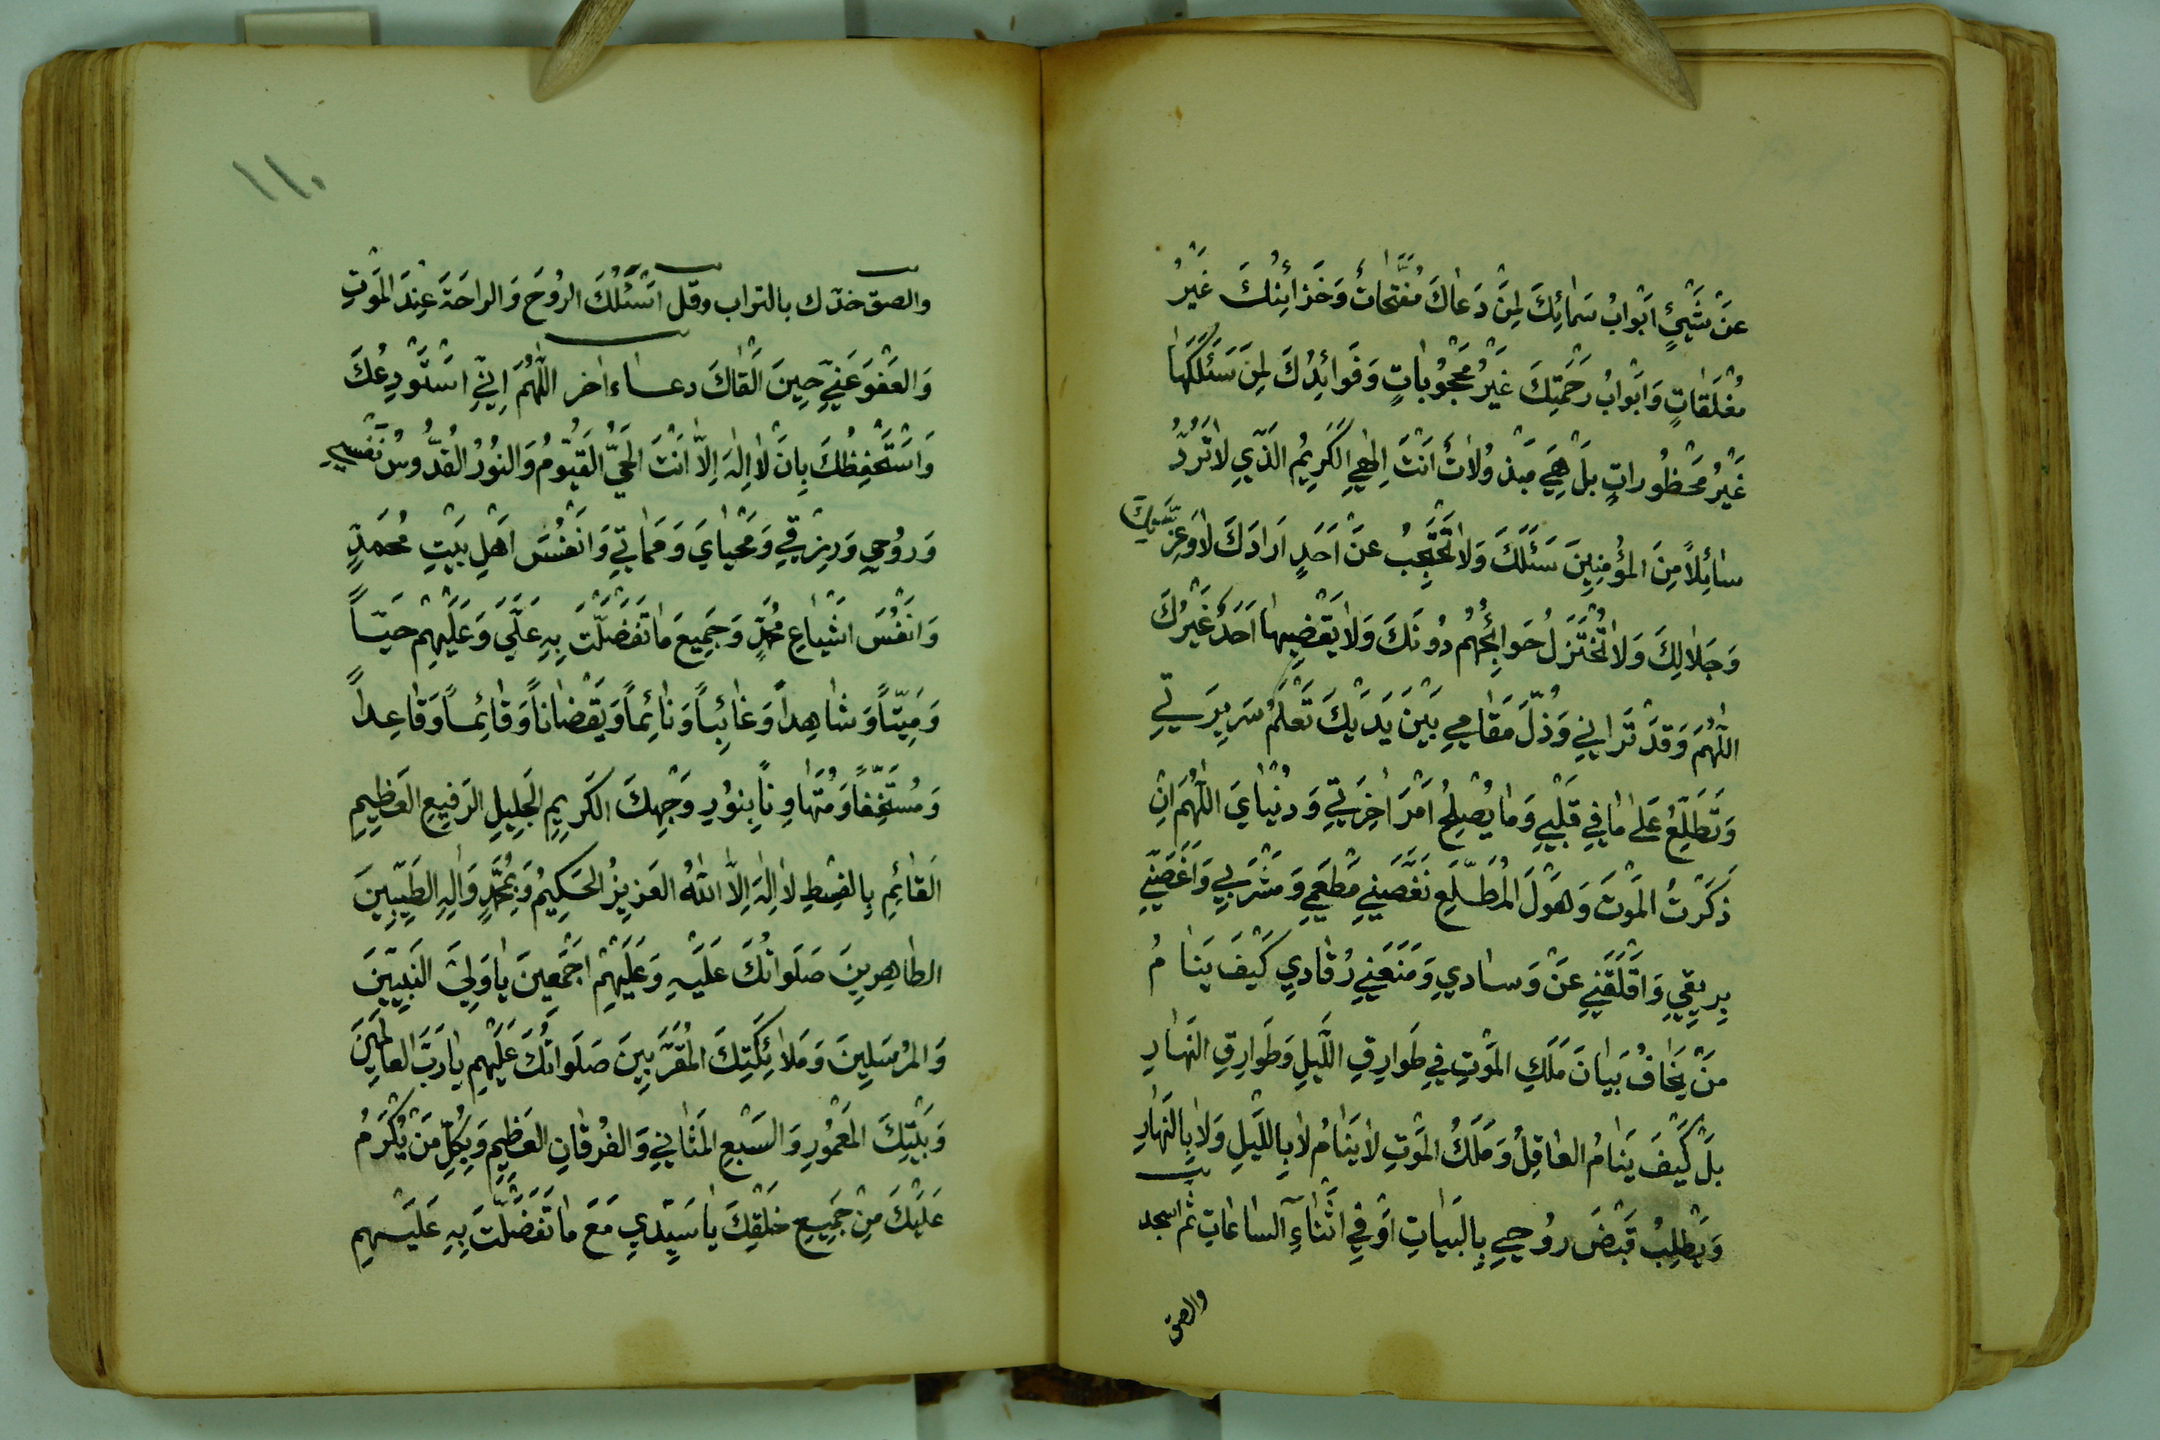 عَنْ شَيْئٍ اَبْوابُ سَمائِكَ لِمَنْ دَعاكَ مُفَتَّحاتٌ وَخَزائِنُكَ غَيْرُ
مُغْلَقاتٍ وَاَبْوابُ رَحْمَتِكَ غَيْرُ مَحْجُوباتٍ وَفَوائِدُكَ لِمَنْ سَئَلَكَها
غَيْرُ مَحْظُوراتٍ بَلْ هِيَ مَبْذُولاتٌ اَنْتَ اِلهِي الْكَرِيمُ الَّذِي لاتَرُدُّ
سائِلاً مِنَ المُؤْمِنِينَ سَئَلَكَ وَلاتَحْتَجِبُ عَنْ اَحَدٍ اَرادَكَ لاوَعِزَّتِكَ
وَجَلالِكَ وَلاتُخْتَزَلُ حَوائِجُهُم دُونَكَ وَلايَقْضِيها اَحَدٌ غَيْرُكَ
اللّهُمَّ وَقَدْ تَرانِي وَذُلَّ مَقامِي بَيْنَ يَدَيْكَ تَعْلَمُ سَرِيرَتِي
وَتَطَّلِعُ عَلى مافِي قَلْبِي وَمايُصْلِحُ اَمْرَ اخِرَتِي وَدُنْيايَ اللّهُمَّ اِنْ
ذَكَرْتُ المَوْتَ وَهَوْلَ المُطَّلَعِ نَغَّصَنِي مَطْعَمِي وَمَشْرَبِي وَاَغَصَّنِي
بِرِيقِي وَاَقْلَقَنِي عَنْ وَسادِي وَمَنَعَنِي رُقادِي كَيْفَ يَنامُ
مَنْ يَخافُ بَيانَ مَلَكِ المَوْتِ فِي طَوارِقِ اللَّيلِ وَطَوارِقِ النَّهارِ
بَلْ كَيْفَ يَنامُ العاقِلُ وَمَلَكُ المَوْتِ لايَنامُ لابِاللَّيلِ وَلابِالنَّهارِ
وَيَطْلِبُ قَبْضَ رُوحِي بِالبَياتِ اَوْفِي اثْناءِ الساعاتِ ثم اسجد
والصق
١١٠
والصق خدّك بالتراب وقل اَسْئَلُكَ الرَوْحَ وَالراحَةَ عِنْدَ المَوْتِ
وَالعَفْوَ عَنِّي حِينَ اَلْقاكَ دعاء اخر اللّهُمَّ اِنِّي اَسْتَوْدِعُكَ
وَاَسْتَحْفِظُكَ بِاَنْ لااِلهَ اِلاّ اَنْتَ الحَيُّ القَيُّومُ وَالنُورُ القُدُّوسُ نَفْسِي
وَرُوحِي وَرِزْقِي وَمَحْيايَ وَمَماتِي وَاَنْفُسَ اَهْلِ بَيْتِ مُحَمَدٍ
وَاَنْفُسَ اَشْياعِ مُحَمَّدٍ وَجَمِيعَ ماتَفَضَّلْتَ بِهِ عَلَيَّ وَعَلَيْهِمْ حَيّاً
وَمَيِّتاً وَشاهِداً وَغائِباً وَنائِماً وَيَقْضاناً وَقائِماً وَقاعِداً
وَمُسْتَخِفّاً وَمُتَهاوِناً بِنُورِ وَجْهِكَ الكَرِيمِ الجَلِيلِ الرَفِيعِ العَظِيمِ
القائِمِ بِالقِسْطِ لااِلهَ اِلاّ اللّهُ العَزِيزُ الحَكِيمُ وَبِمُحَمَّدٍ وَالِهِ الطَيِّبِينَ
الطاهِرِينَ صَلَواتُكَ عَلَيْهِ وَعَلَيْهِمْ اَجْمَعِينَ ياوَلِيَّ النَبِيِّينَ
وَالمُرْسَلِينَ وَمَلائِكَتِكَ المُقَرَّبِينَ صَلَواتُكَ عَلَيْهِم يارَبَّ العالَمِينَ
وَبَيْتِكَ المَعْمُورِ وَالسَبْعِ المَثانِي وَالفُرْقانِ العَظِيمِ وَبِكُلِّ مَنْ يُكْرَمُ
عَلَيْكَ مِنْ جَمِيعِ خَلْقِكَ ياسَيِّدِي مَعَ ماتَفَضَّلْتَ بِهِ عَلَيْهِم